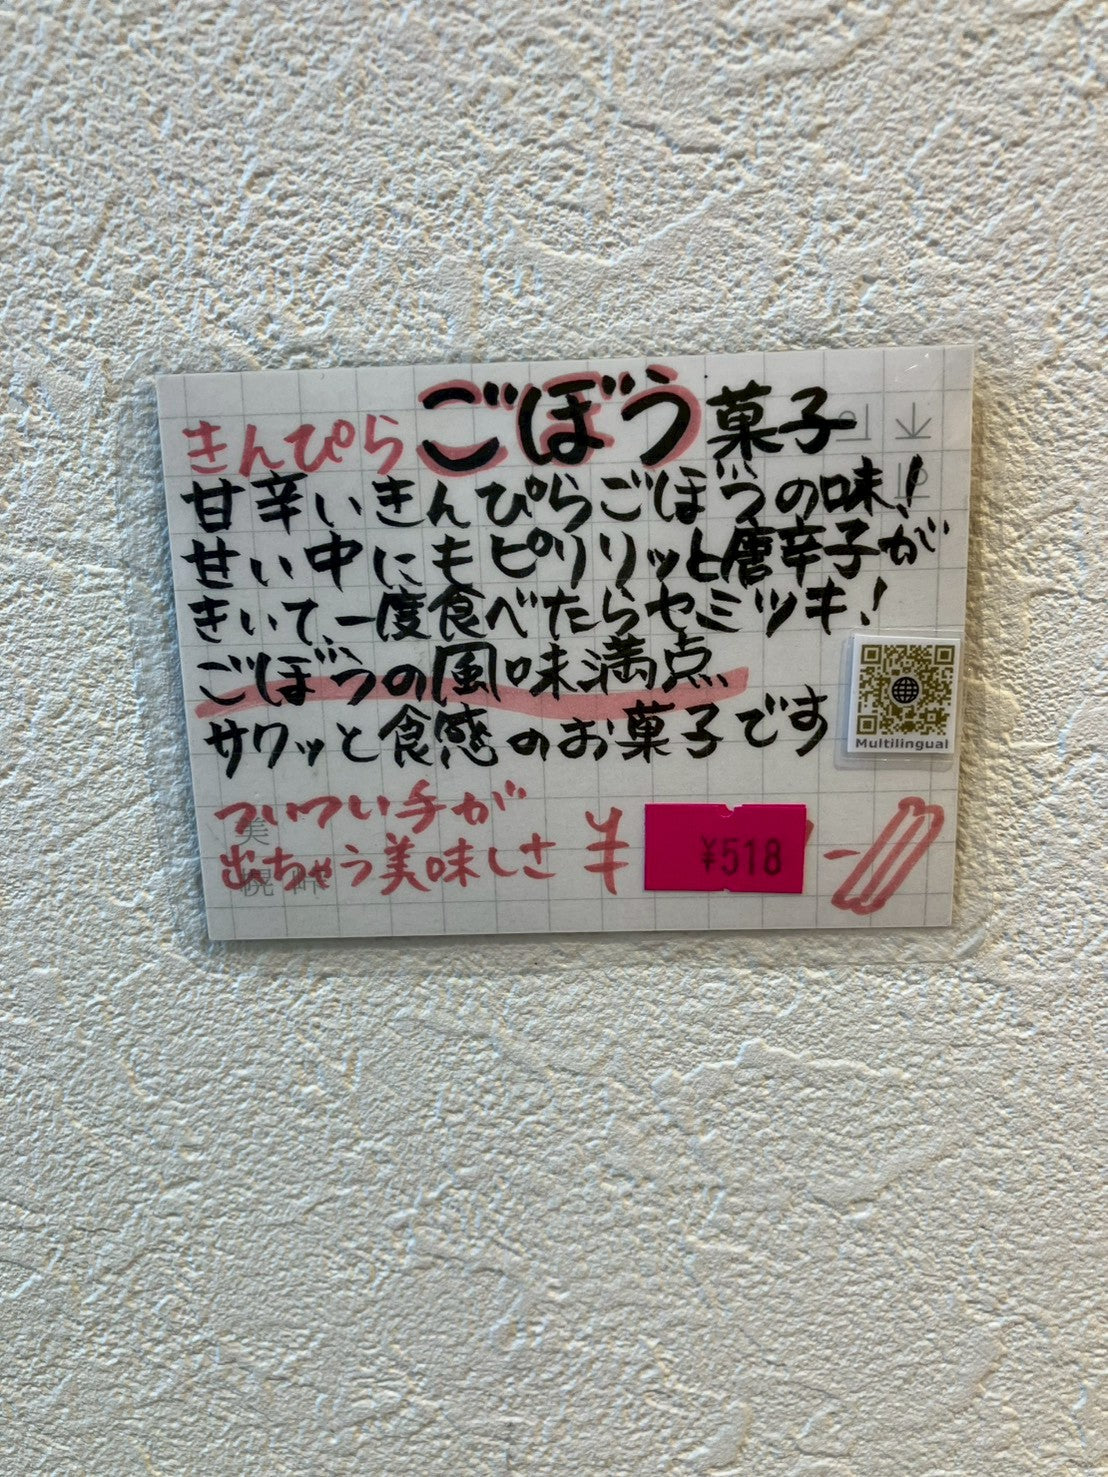 きんぴらごぼう菓子
甘辛いきんぴらごぼうの味!
甘い中にもピリリッと唐辛子が
きいて、一度食べたらヤミツキ!
ごぼうの風味満点
サクッと食感のお菓子です
Multilingual
ついつい手が
出ちゃう美味しさ ¥ ¥518 -